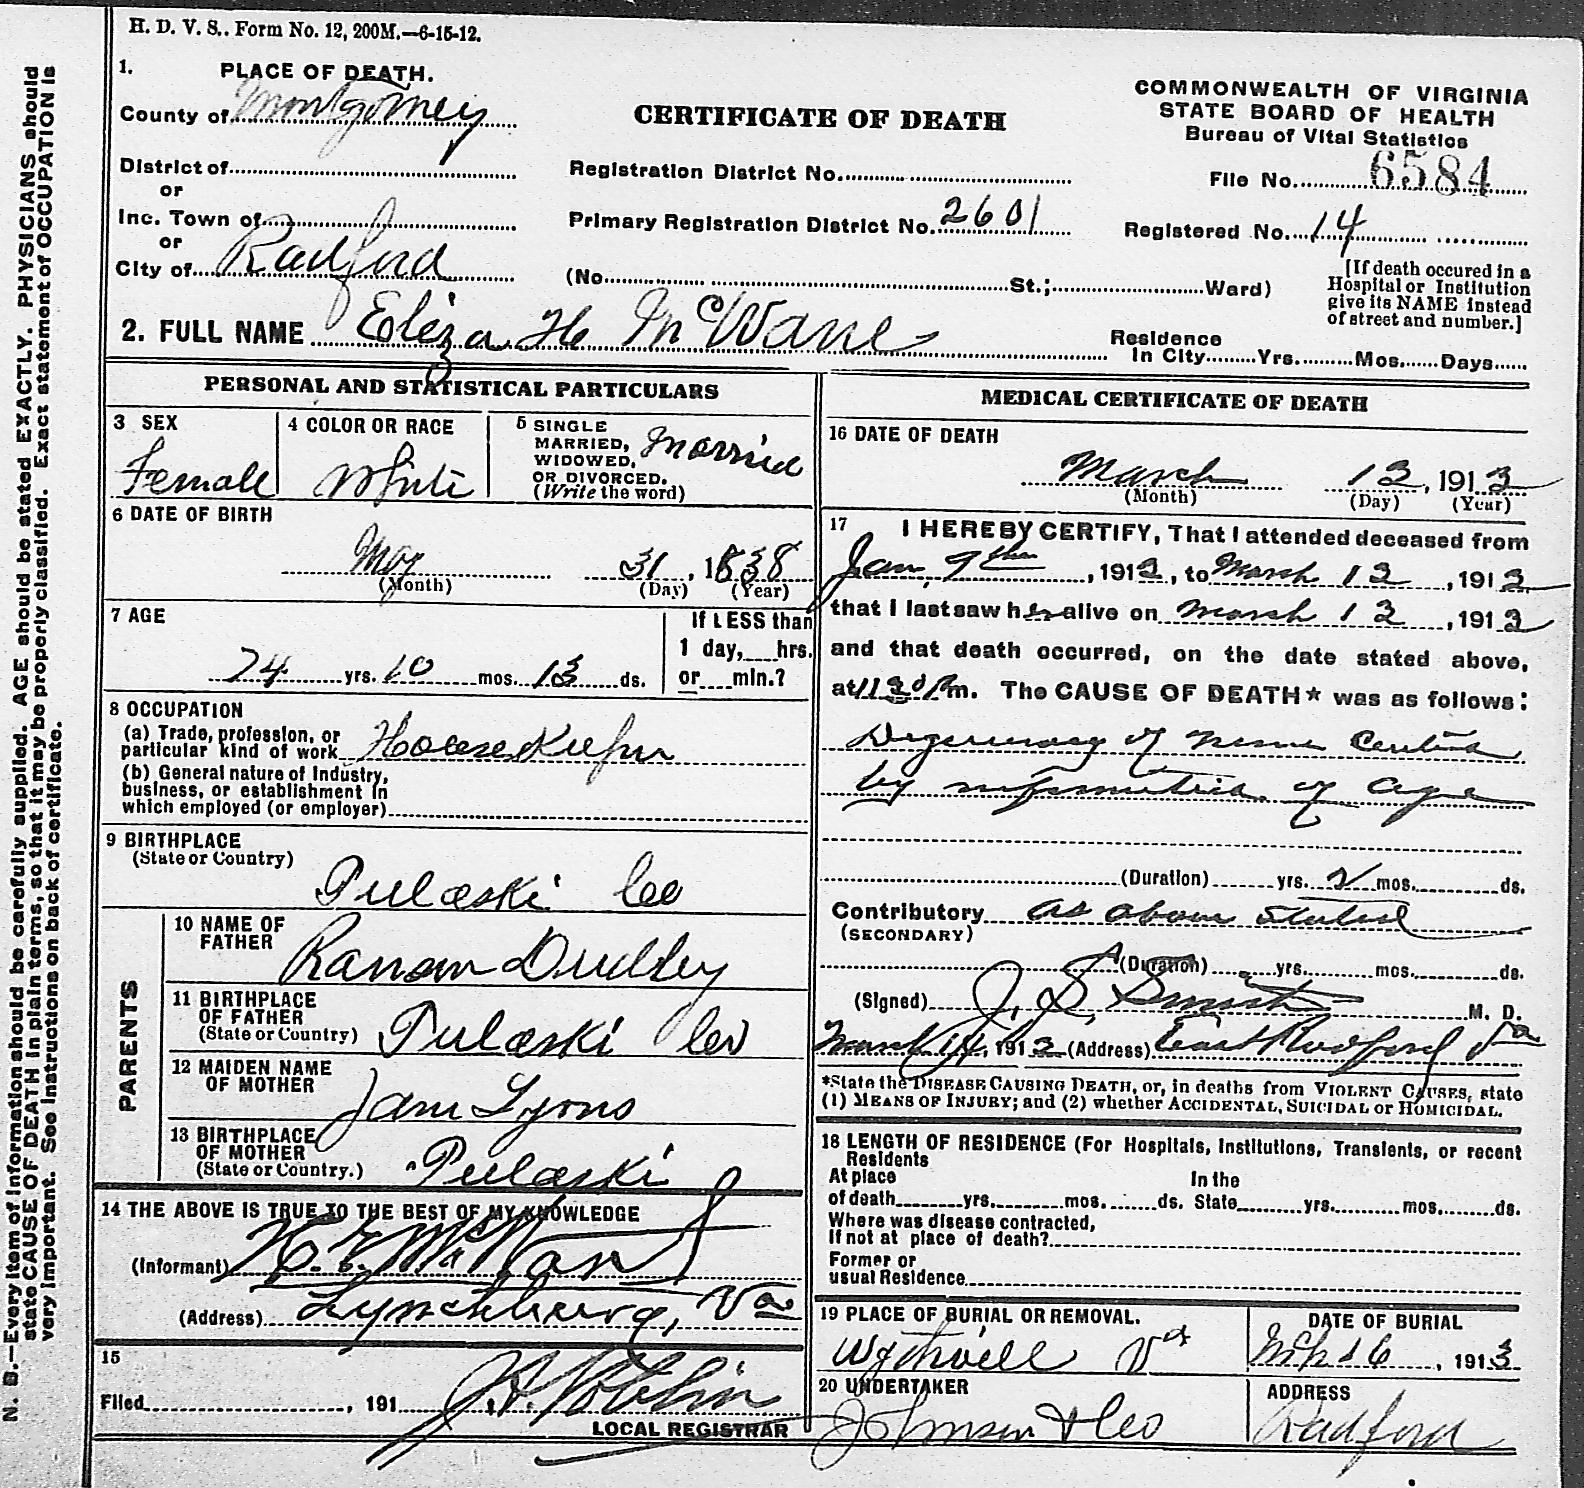 H. D. V. S.. Form No. 12, 200M.—6-15-12.
1. PLACE OF DEATH.
County of Montgomery
District of
or
Inc. Town of
or
City of Radford
CERTIFICATE OF DEATH
Registration District No.
Primary Registration District No. 2601
(No. St.; Ward)
COMMONWEALTH OF VIRGINIA
STATE BOARD OF HEALTH
Bureau of Vital Statistics
File No. 6584
Registered No. 14
[If death occured in a
Hospital or Institution
give its NAME instead
of street and number.]
2. FULL NAME Eliza H McWane
Residence
In City Yrs. Mos. Days
PERSONAL AND STATISTICAL PARTICULARS
3 SEX
Female
4 COLOR OR RACE
White
5 SINGLE
MARRIED,
WIDOWED,
OR DIVORCED.
(Write the word)
Married
6 DATE OF BIRTH
May 31, 1838
(Month) (Day) (Year)
7 AGE
74 yrs. 10 mos. 13 ds.
If LESS than
1 day, hrs.
or min.?
8 OCCUPATION
(a) Trade, profession, or
particular kind of work HouseKeeper
(b) General nature of Industry,
business, or establishment in
which employed (or employer)
9 BIRTHPLACE
(State or Country)
Pulaski Co
PARENTS
10 NAME OF
FATHER
Ransom Dudley
11 BIRTHPLACE
OF FATHER
(State or Country) Pulaski Co
12 MAIDEN NAME
OF MOTHER
Jane Lyons
13 BIRTHPLACE
OF MOTHER
(State or Country.) Pulaski
14 THE ABOVE IS TRUE TO THE BEST OF MY KNOWLEDGE
(Informant) McWane
(Address) Lynchburg, Va
15
Filed , 191
LOCAL REGISTRAR
MEDICAL CERTIFICATE OF DEATH
16 DATE OF DEATH
March 13, 1913
(Month) (Day) (Year)
17 I HEREBY CERTIFY, That I attended deceased from
Jan, 9th, 1913, to March 13, 1913
that I last saw her alive on March 13, 1913
and that death occurred, on the date stated above,
at 1130 P m. The CAUSE OF DEATH* was as follows:
Degeneracy of nerve Centers
by infirmities of age
(Duration) yrs. 2 mos. ds.
Contributory as above stated
(SECONDARY)
(Duration) yrs. mos. ds.
(Signed) J. S. M. D.
March 14, 1913 (Address) East Radford Va
*State the DISEASE CAUSING DEATH, or, in deaths from VIOLENT CAUSES, state
(1) MEANS OF INJURY; and (2) whether ACCIDENTAL, SUICIDAL or HOMICIDAL.
18 LENGTH OF RESIDENCE (For Hospitals, Institutions, Transients, or recent
Residents
At place In the
of death yrs. mos. ds. State yrs. mos. ds.
Where was disease contracted,
If not at place of death?
Former or
usual Residence
19 PLACE OF BURIAL OR REMOVAL.
Wytheville Va
DATE OF BURIAL
Mch 16, 1913
20 UNDERTAKER
Johnson & Co
ADDRESS
Radford
N. B.—Every item of information should be carefully supplied. AGE should be stated EXACTLY. PHYSICIANS should
state CAUSE OF DEATH in plain terms, so that it may be properly classified. Exact statement of OCCUPATION is
very important. See instructions on back of certificate.